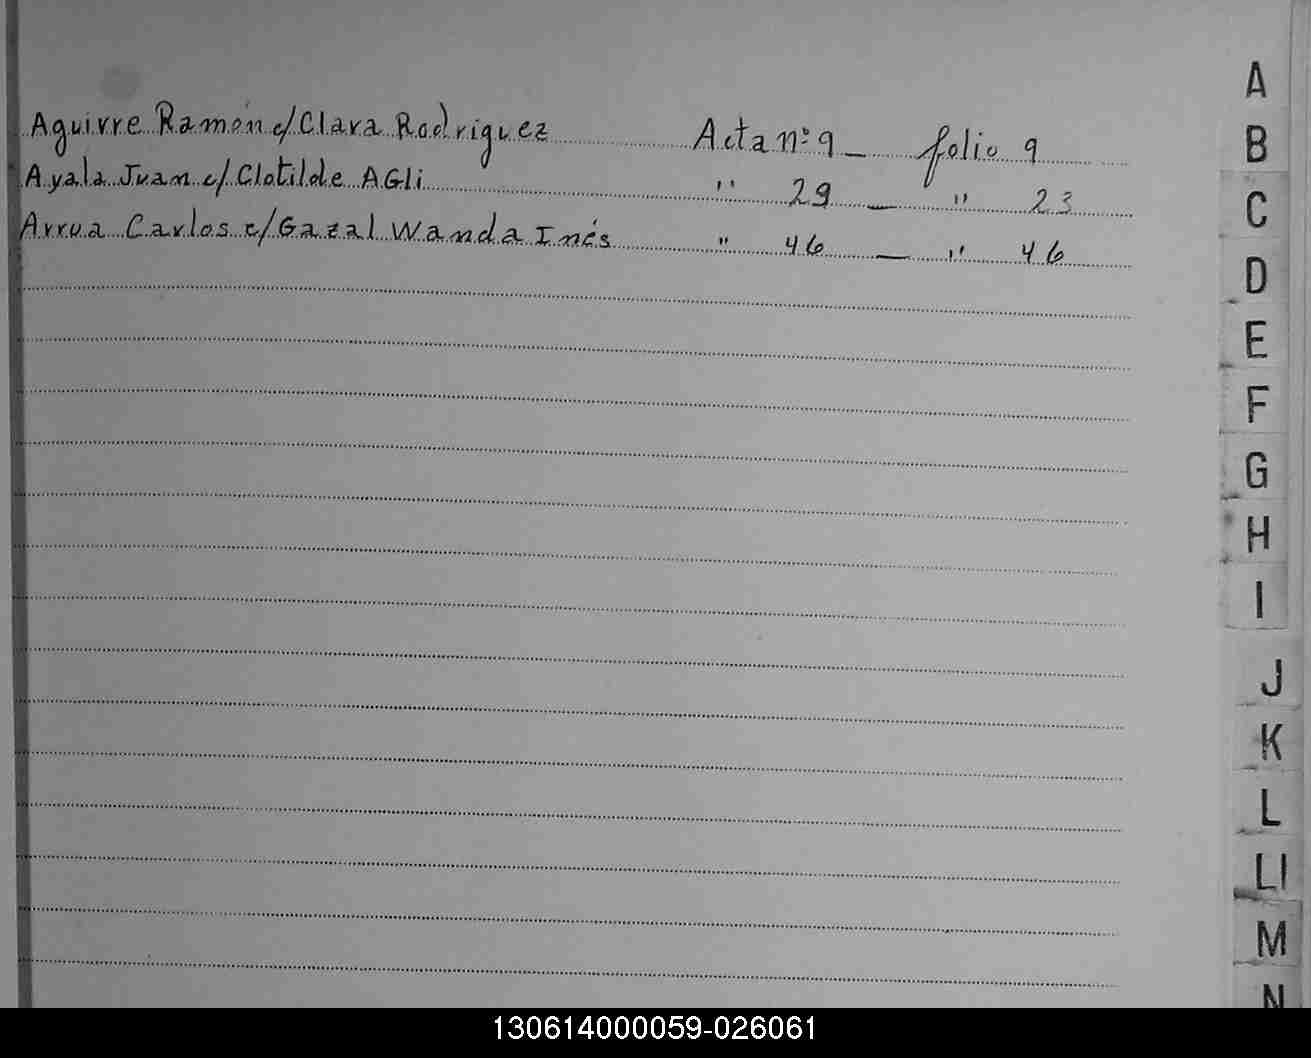 Aguirre Ramón c/ Clara Rodriguez Acta nº 9 — folio 9
Ayala Juan c/ Clotilde AGli " 29 — " 23
Arrua Carlos c/ Gazal Wanda Inés " 46 — " 46
A
B
C
D
E
F
G
H
I
J
K
L
Ll
M
N
130614000059-026061